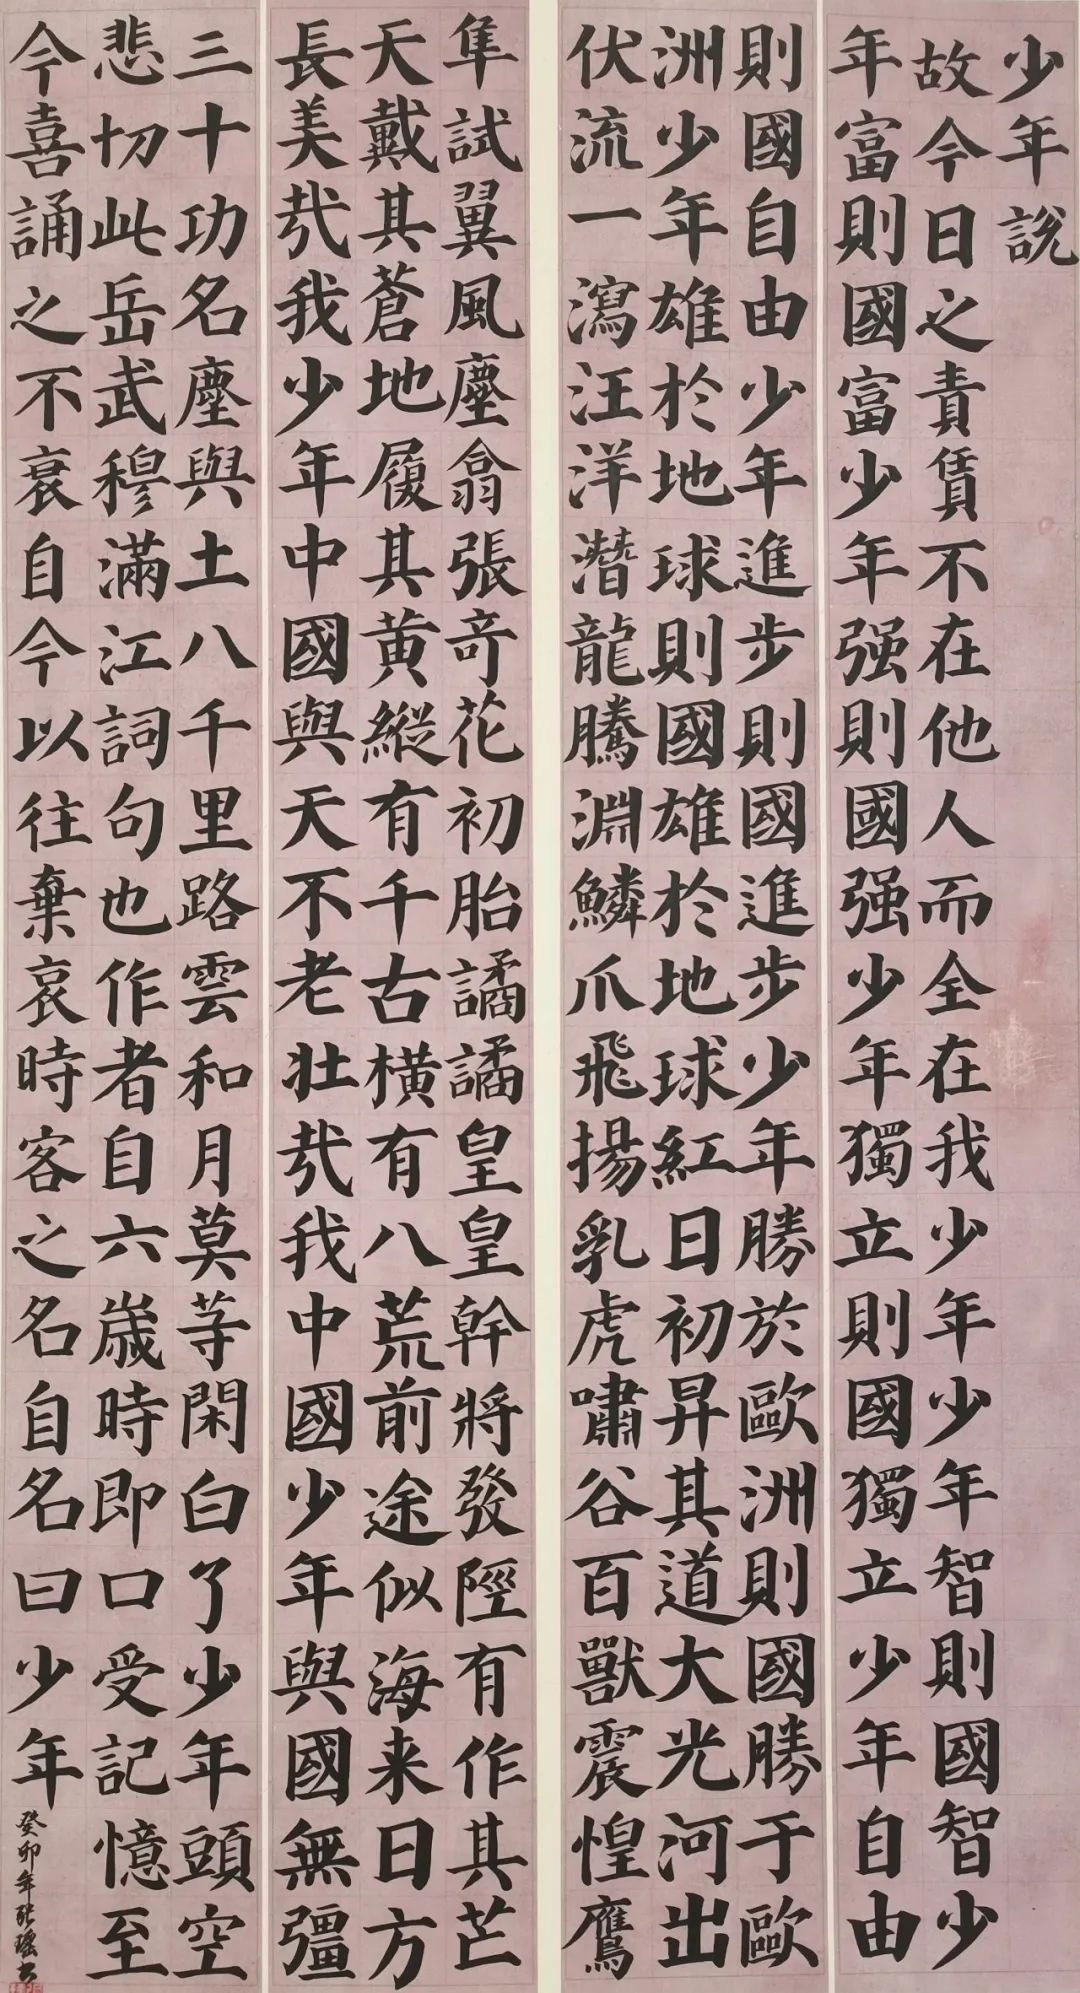 少年說
故今日之責賃不在他人而全在我少年少年智則國智少
年富則國富少年强則國强少年獨立則國獨立少年自由
則國自由少年進步則國進步少年勝於歐洲則國勝于歐
洲少年雄於地球則國雄於地球紅日初昇其道大光河出
伏流一瀉汪洋潛龍騰淵鱗爪飛揚乳虎嘯谷百獸震惶鷹
隼試翼風塵翕張奇花初胎譎譎皇皇幹將發陘有作其芒
天戴其蒼地履其黄縱有千古橫有八荒前途似海来日方
長美哉我少年中國與天不老壯哉我中國少年與國無彊
三十功名塵與土八千里路雲和月莫等閑白了少年頭空
悲切此岳武穆滿江詞句也作者自六嵗時即口受記憶至
今喜誦之不衰自今以往棄哀時客之名自名曰少年
癸卯年張瑶书